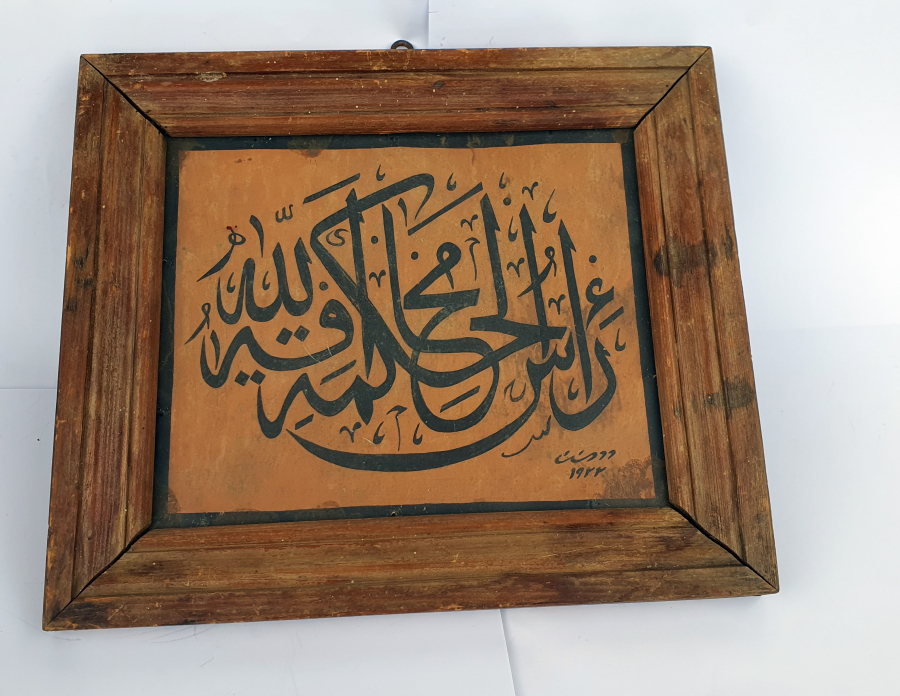 رأس الحكمة مخافة الله
١٩٢٢